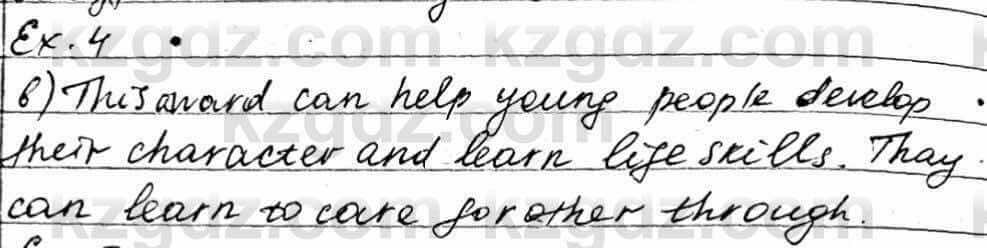 Ex. 4
b) This award can help young people develop
their character and learn life skills. Thay
can learn to care for other through.
kzgdz.com kzgdz.com
kzgdz.com
kzgdz.com kzgdz.com